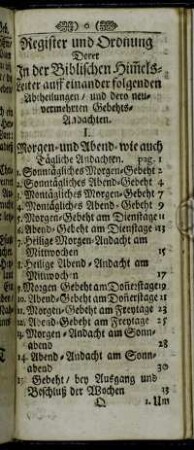 Register und Ordnung
Derer
In der Biblischen Him̃els-
Leiter auff einander folgenden
Abtheilungen/ und dero neu-
vermehrten Gebehts-
Andachten.
I.
Morgen-und Abend- wie auch
Tägliche Andachten. pag. 1
1. Sonntägliches Morgen-Gebeht 2
2. Sonntägliches Abend-Gebeht 4
3. Montägliches Morgen-Gebeht 7
4. Montägliches Abend-Gebeht 9
5. Morgen-Gebeht am Dienstage 11
6. Abend-Gebeht am Dienstage 13
7. Heilige Morgen-Andacht am
Mittwochen 15
8. Heilige Abend-Andacht am
Mittwochen 17
9. Morgen Gebeht am Doñerstage 19
10. Abend-Gebeht am Doñerstage 21
11. Morgen-Gebeht am Freytage 23
12. Abend-Gebeht am Freytage 25
13. Morgen-Andacht am Sonn-
abend 28
14. Abend-Andacht am Sonn-
abend 30
15. Gebeht/ bey Ausgang und
Beschluß der Wochen 31
Q 1. Um